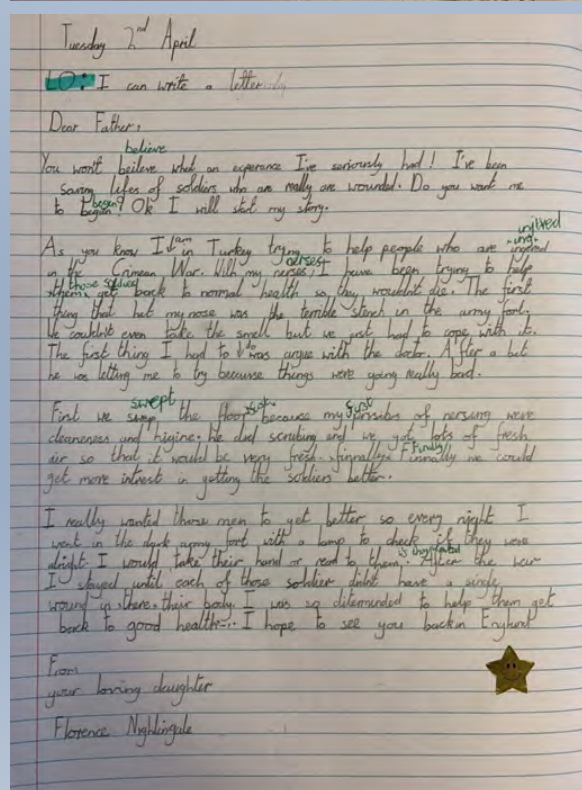 Tuesday 2nd April
LO: I can write a letter
Dear Father,
believe
You won't beileve what an experance I've seriously had! I've been
saving lifes of soldiers who are really are wounded. Do you want me
begin
to begain? Ok I will start my story.
injired
As you know I am in Turkey trying to help people who are
nerses
in the Crimean War. With my nerses, I have been trying to help
those soldiers
them get back to normal health so they wouldn't die. The first
thing that het my nose was the terrible stench in the army fort.
We couldn't even take the smell but we just had to cope with it.
The first thing I had to do was argue with the doctor. After a bit
he was letting me to try because things were going really bad.
swept
first
First we swep the floor because my of nersing were
cleaneness and higine. We did scrubing and we got lots of fresh
Finally
air so that it would be very fresh. finnally. Finnally we could
get more intrest in getting the soldiers better.
I really wanted those men to get better so every night I
went in the dark army fort with a lamp to check if they were
alright. I would take their hand or read to them. After the war
I stayed until each of those soldier didnt have a single
wound in there their body. I was so ditemunded to help them get
back to good health... I hope to see you back in England
From
your loving daughter
Florence Nightingale